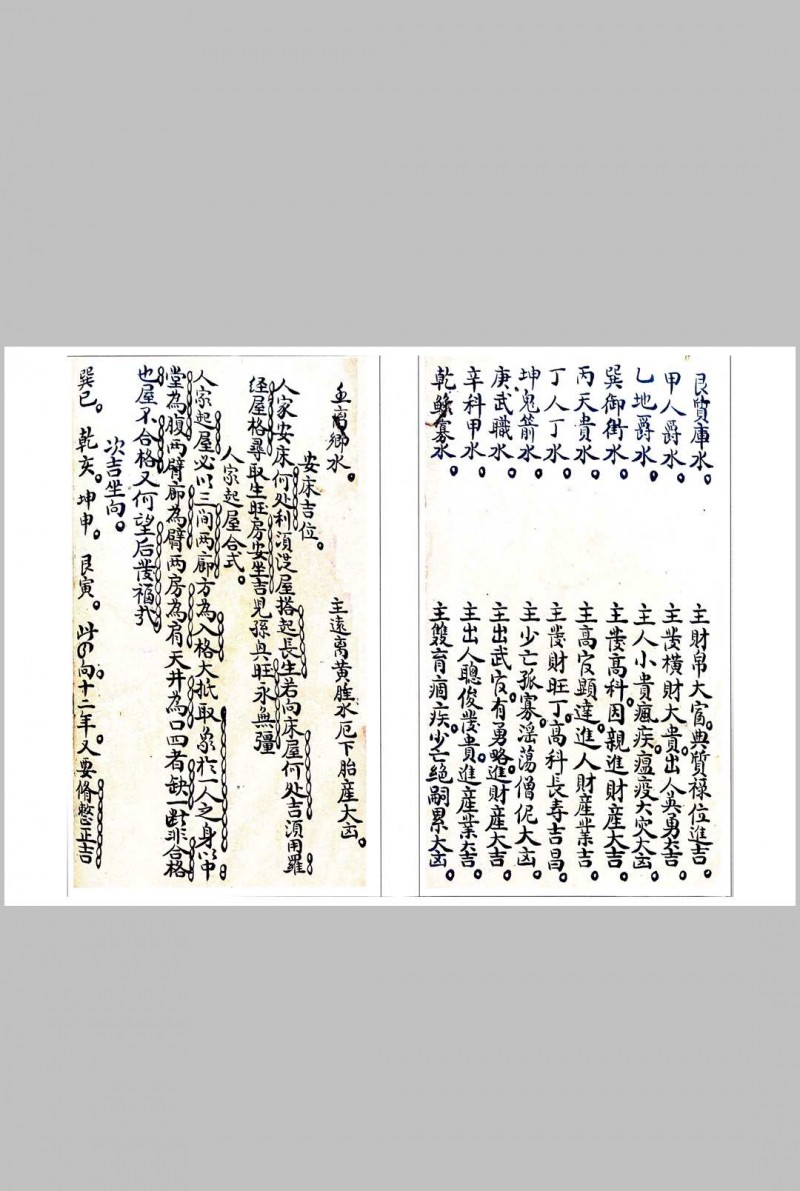 艮質庫水。 主財帛大富。典質禄位進吉。
甲人爵水。 主發橫財大貴。出人英勇大吉。
乙地爵水。 主人小貴瘋疾。瘟疫大灾大凶。
巽御街水。 主發高科。因親進財産大吉。
丙天貴水。 主高官顕達。進人財産業吉。
丁人丁水。 主發財旺丁。高科長寿吉昌。
坤鬼箭水。 主少亡孤寡。淫蕩僧伲大凶。
庚武職水。 主出武官。有勇略進財産大吉。
辛科甲水。 主出人聰俊發貴。進産業大吉。
乾鰥寡水。 主雙育痼疾。少亡绝嗣累大凶。
壬离鄉水。 主遠离黄腫水厄下胎産大凶。
安床吉位。
人家安床何处利須従屋搭起長生若向床屋何处吉須用羅
経屋格尋取生旺房安坐吉児孫興旺永無疆
人家起屋合式。
人家起屋必以三间两廊方為入格大抵取象於一人之身以中
堂為腹两臂廊為臂两房為肩天井為口四者缺一對非合格
也屋不合格又何望后發福弐
次吉坐向。
巽巳。乾亥。坤申。艮寅。此の向十二年又要脩整正吉